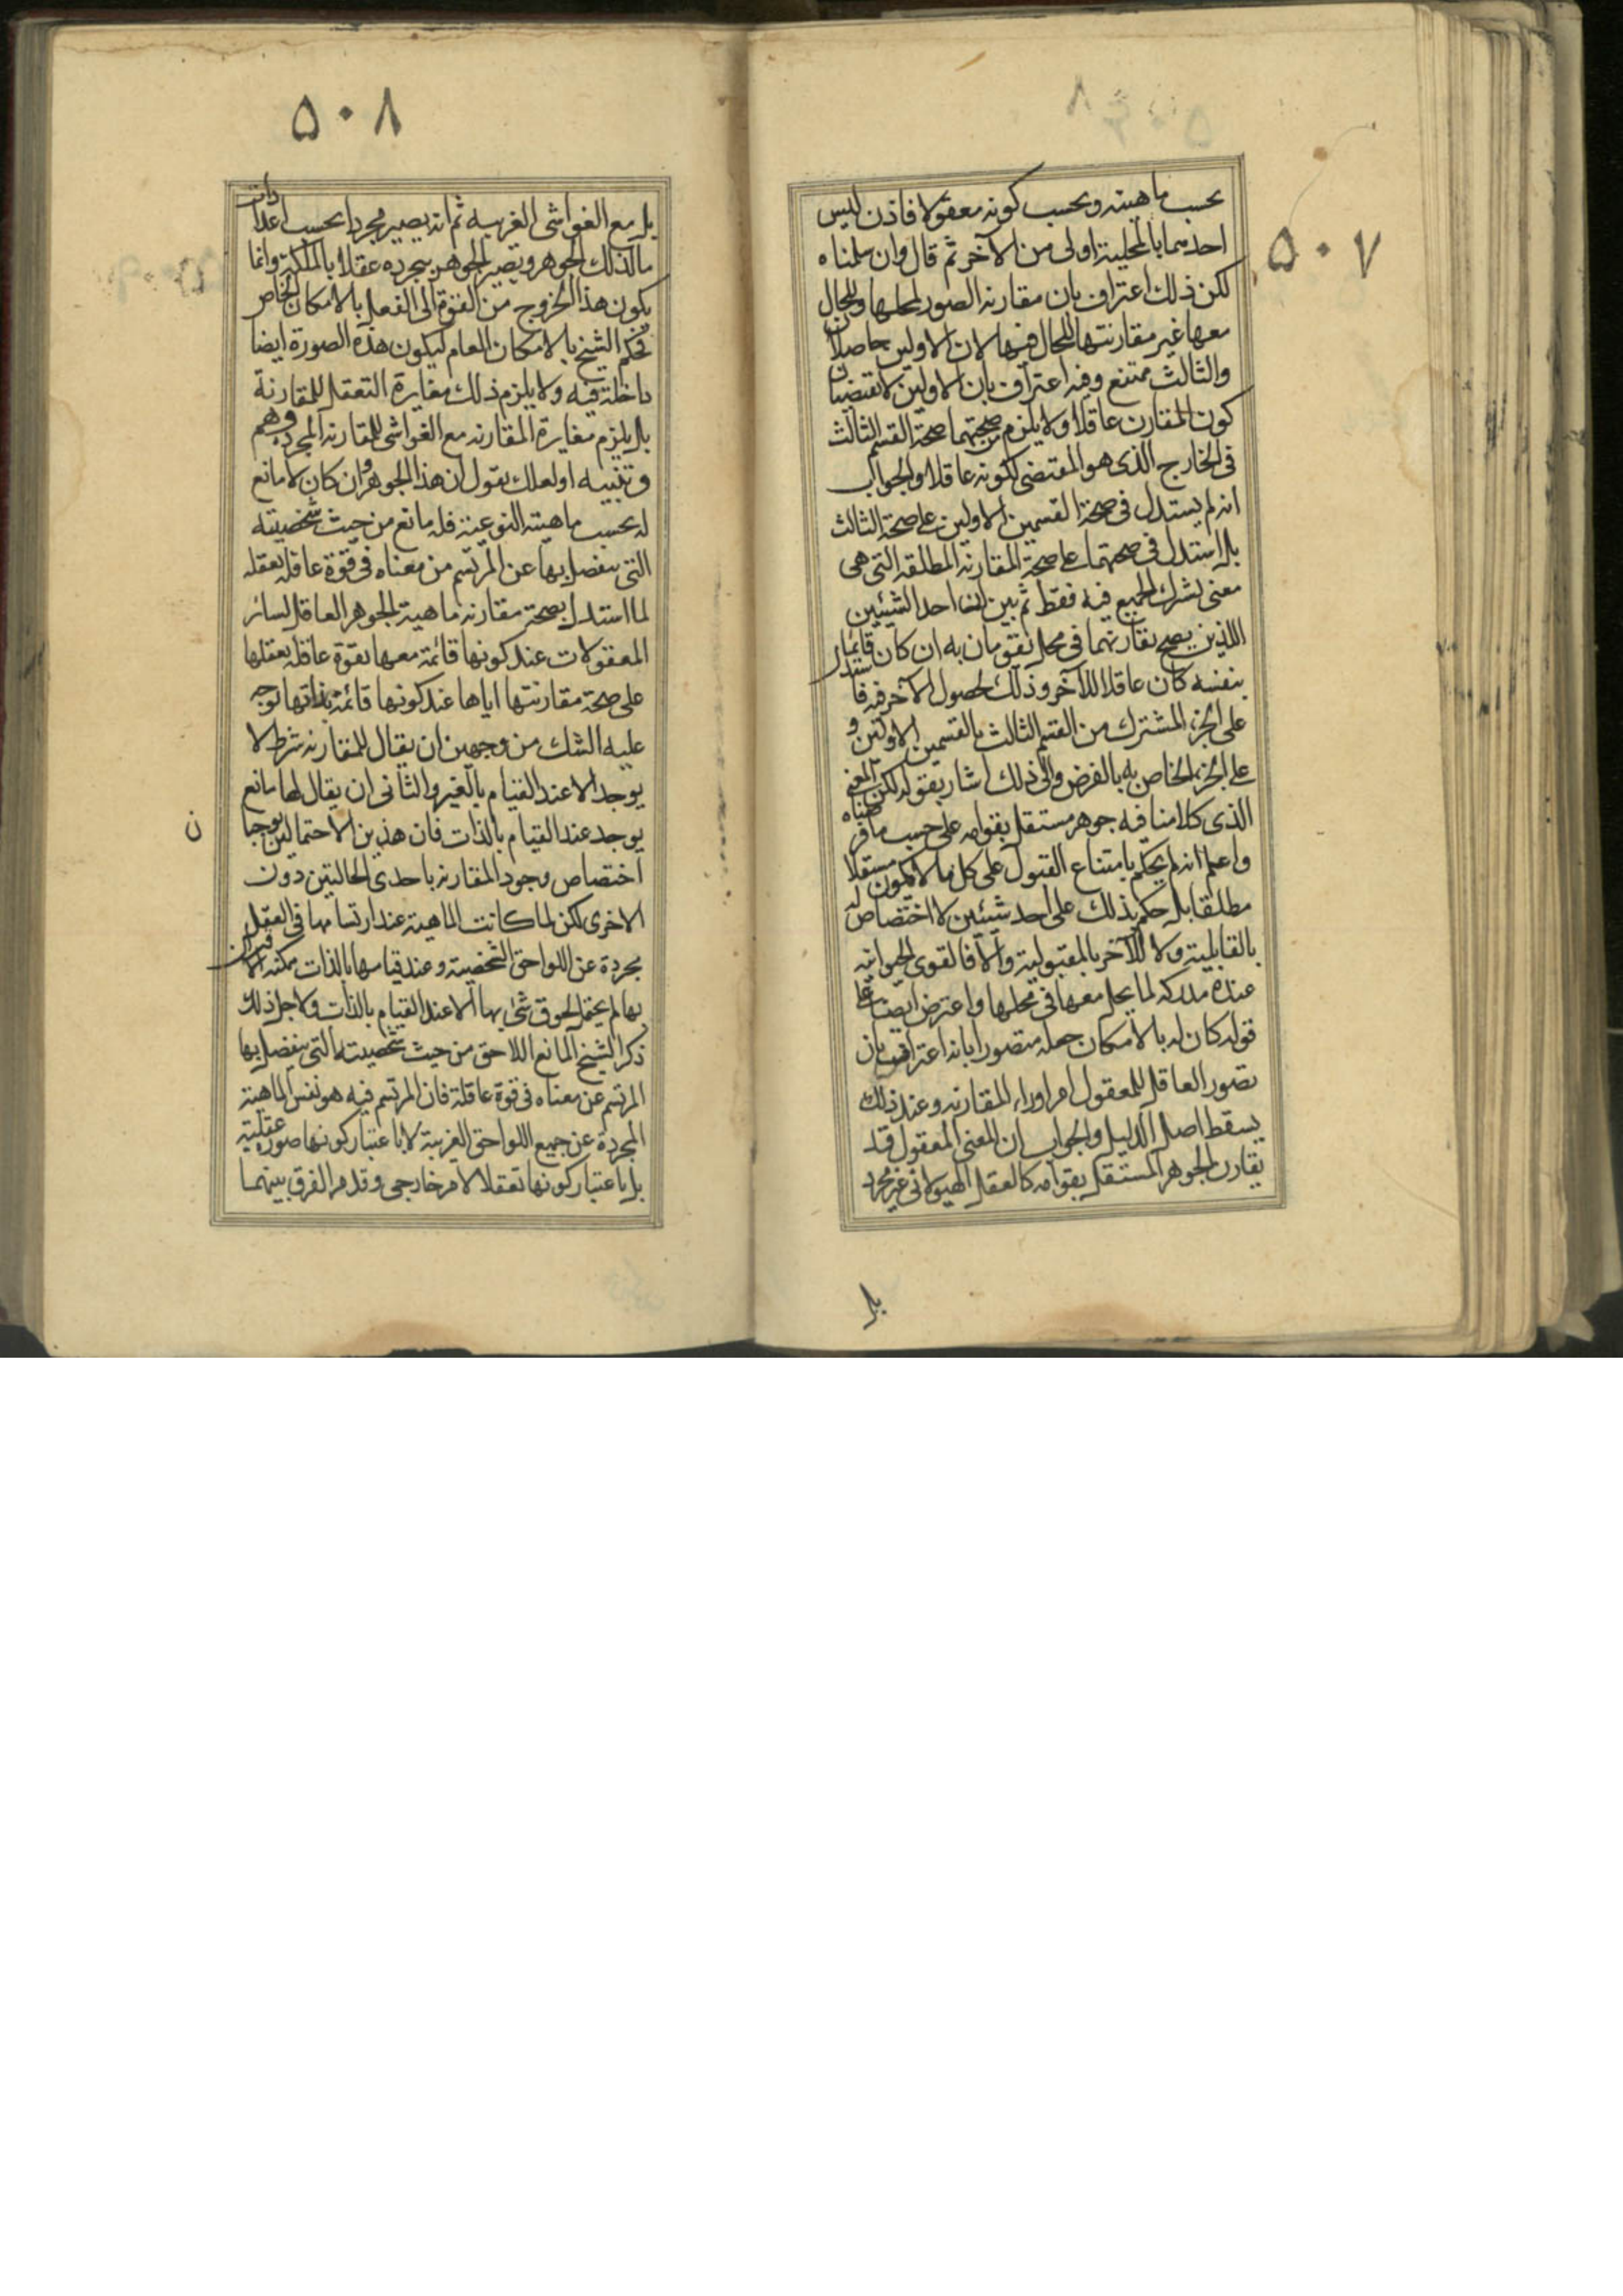 ۵۰۷
بحسب ماهيته وبحسب كونه معقولا فاذن ليس
احدهما بالمحلية اولى من الآخر ثم قال وان سلمناه
لكن ذلك اعتراف بان مقارنه الصور لمحلها وللحال
معها غير مقارنتها للحال فيها لان الاولين حاصلان
والثالث ممتنع وفيه اعتراف بان الاولين لا تقتضيان
كون المقارن عاقلا ولا يلزم من صحتهما صحة القسم الثالث
فى الخارج الذى هو المقتضى لكونه عاقلا والجواب
انه لم يستدل فى صحة القسمين الاولين على صحة الثالث
بل استدل فى صحتهما على صحة المقارنه المطلقه التى هى
معنى يشترك الجميع فيه فقط ثم بين ان احد الشيئين
اللذين يصح تقارنهما فى محل يقومان به ان كان قائما
بنفسه كان عاقلا للآخر وذلك لحصول الآخر فيه فاستدل
على الجزء المشترك من القسم الثالث بالقسمين الاولين و
على الجزء الخاص به بالفرض والى ذلك اشار بقوله لكن المعنى
الذى كلامنا فيه جوهر مستقل بقوامه على حسب ما فرضناه
واعلم انه لم يحكم بامتناع القبول على كل ما لا يكون مستقلا
مطلقا بل حكم بذلك على احد شيئين لا اختصاص له
بالقابلية ولا للآخر بالمقبولية والا فالقوى الحيوانيه
عنده مدركه لما يحل معها فى محلها واعترض ايضا على
قوله كان له بالامكان جعله متصورا بانه اعتراف بان
تصور العاقل للمعقول امر وراء المقارنه وعند ذلك
يسقط اصل الدليل والجواب ان المعنى المعقول قد
يقارن الجوهر المستقل بقوامه كالعقل الهيولانى غير مجرد
بل
۵۰۸
بل مع الغواشى الغريبه ثم انه يصير مجردا بحسب اعدادات
ما لذلك الجوهر ويصير الجوهر بتجرده عقلا بالملكة وانما
يكون هذا الخروج من القوة الى الفعل بالامكان الخاص
فحكم الشيخ بالامكان العام ليكون هذه الصورة ايضا
داخلة فيه ولا يلزم ذلك مغايرة التعقل للمقارنة
بل يلزم مغايرة المقارنه مع الغواشى للمقارنه المجرده وهم
وتنبيه او لعلك تقول ان هذا الجوهر وان كان لا مانع
له بحسب ماهيته النوعية فله مانع من حيث شخصيته
التى ينفصل بها عن المرتسم من معناه فى قوة عاقله تعقله
لما استدل بصحة مقارنه ماهية الجوهر العاقل لسائر
المعقولات عند كونها قائمة معها بقوة عاقله تعقلها
على صحة مقارنتها اياها عند كونها قائمة بذاتها توجه
عليه الشك من وجهين ان يقال للمقارنه شرط لا
يوجد الا عند القيام بالغير والثانى ان يقال لها مانع
يوجد عند القيام بالذات فان هذين الاحتمالين يوجبا
ن
اختصاص وجود المقارنه باحدى الحالتين دون
الاخرى لكن لما كانت الماهية عند ارتسامها فى العقل
مجردة عن اللواحق الشخصية وعند قيامها بالذات ممكنه الاقتران
بها لم يحتمل لحوق شئ بها الا عند القيام بالذات ولاجل ذلك
ذكر الشيخ المانع اللاحق من حيث شخصيته التى ينفصل بها
المرتسم عن معناه فى قوة عاقلة فان المرتسم فيه هو نفس الماهية
المجردة عن جميع اللواحق الغريبة لا باعتبار كونها صوره عقلية
بل باعتبار كونها تعقلا لامر خارجى وقد مر الفرق بينهما